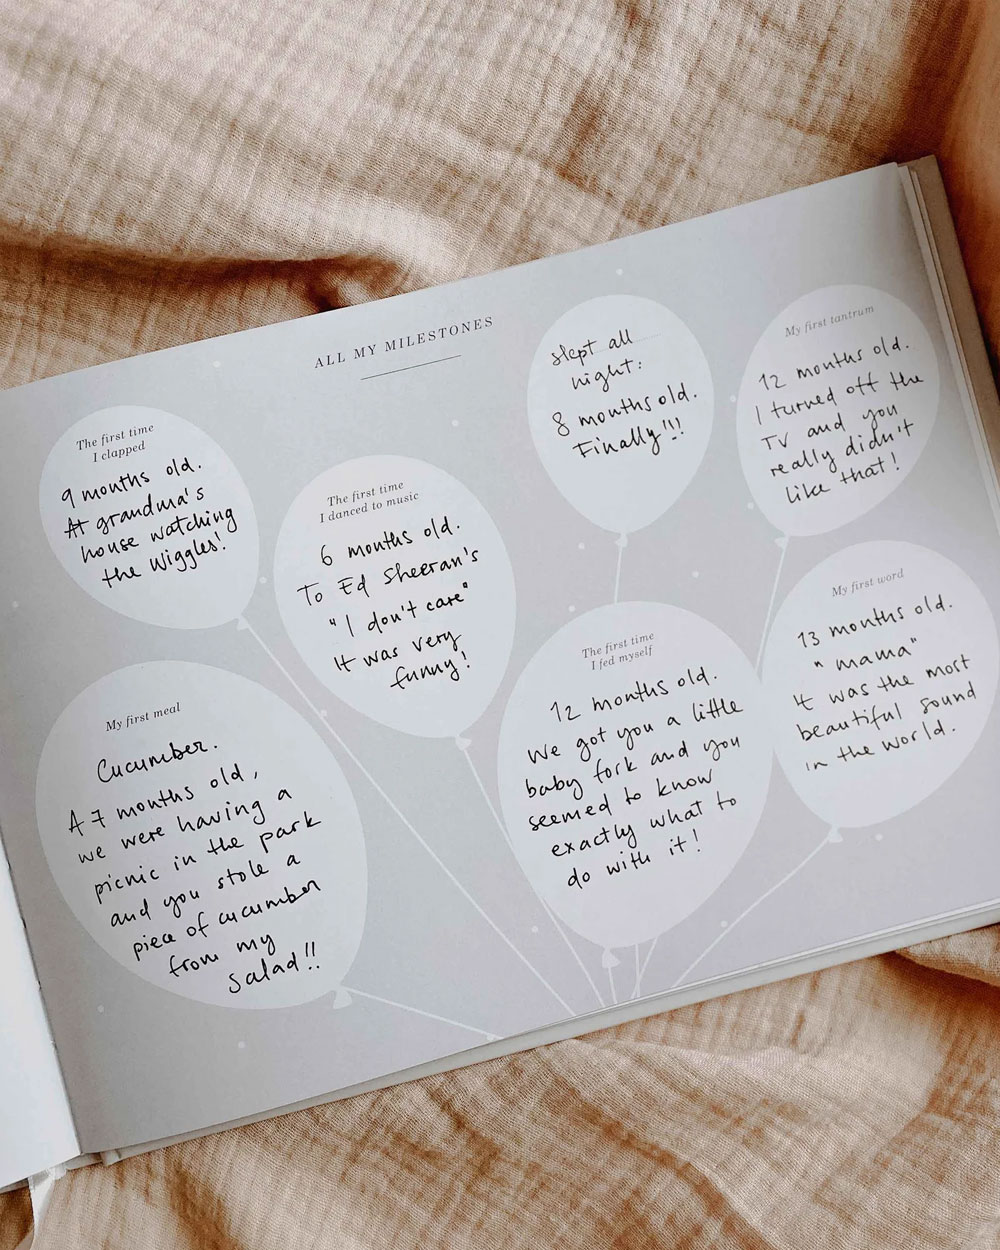 ALL MY MILESTONES
The first time
I clapped
9 months old.
At grandma's
house watching
the Wiggles!
The first time
I danced to music
6 months old.
To Ed Sheeran's
"I don't care"
It was very
funny!
slept all
night:
8 months old.
Finally!!!
My first tantrum
12 months old.
I turned off the
TV and you
really didn't
like that!
My first meal
Cucumber.
A 7 months old,
we were having a
picnic in the park
and you stole a
piece of cucumber
from my
salad!!
The first time
I fed myself
12 months old.
We got you a little
baby fork and you
seemed to know
exactly what to
do with it!
My first word
13 months old.
"mama"
It was the most
beautiful sound
in the world.